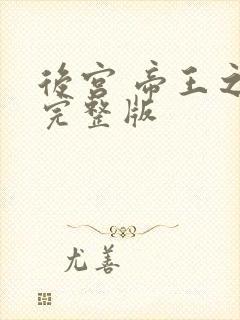 後宮 帝王之
完整版
尤善